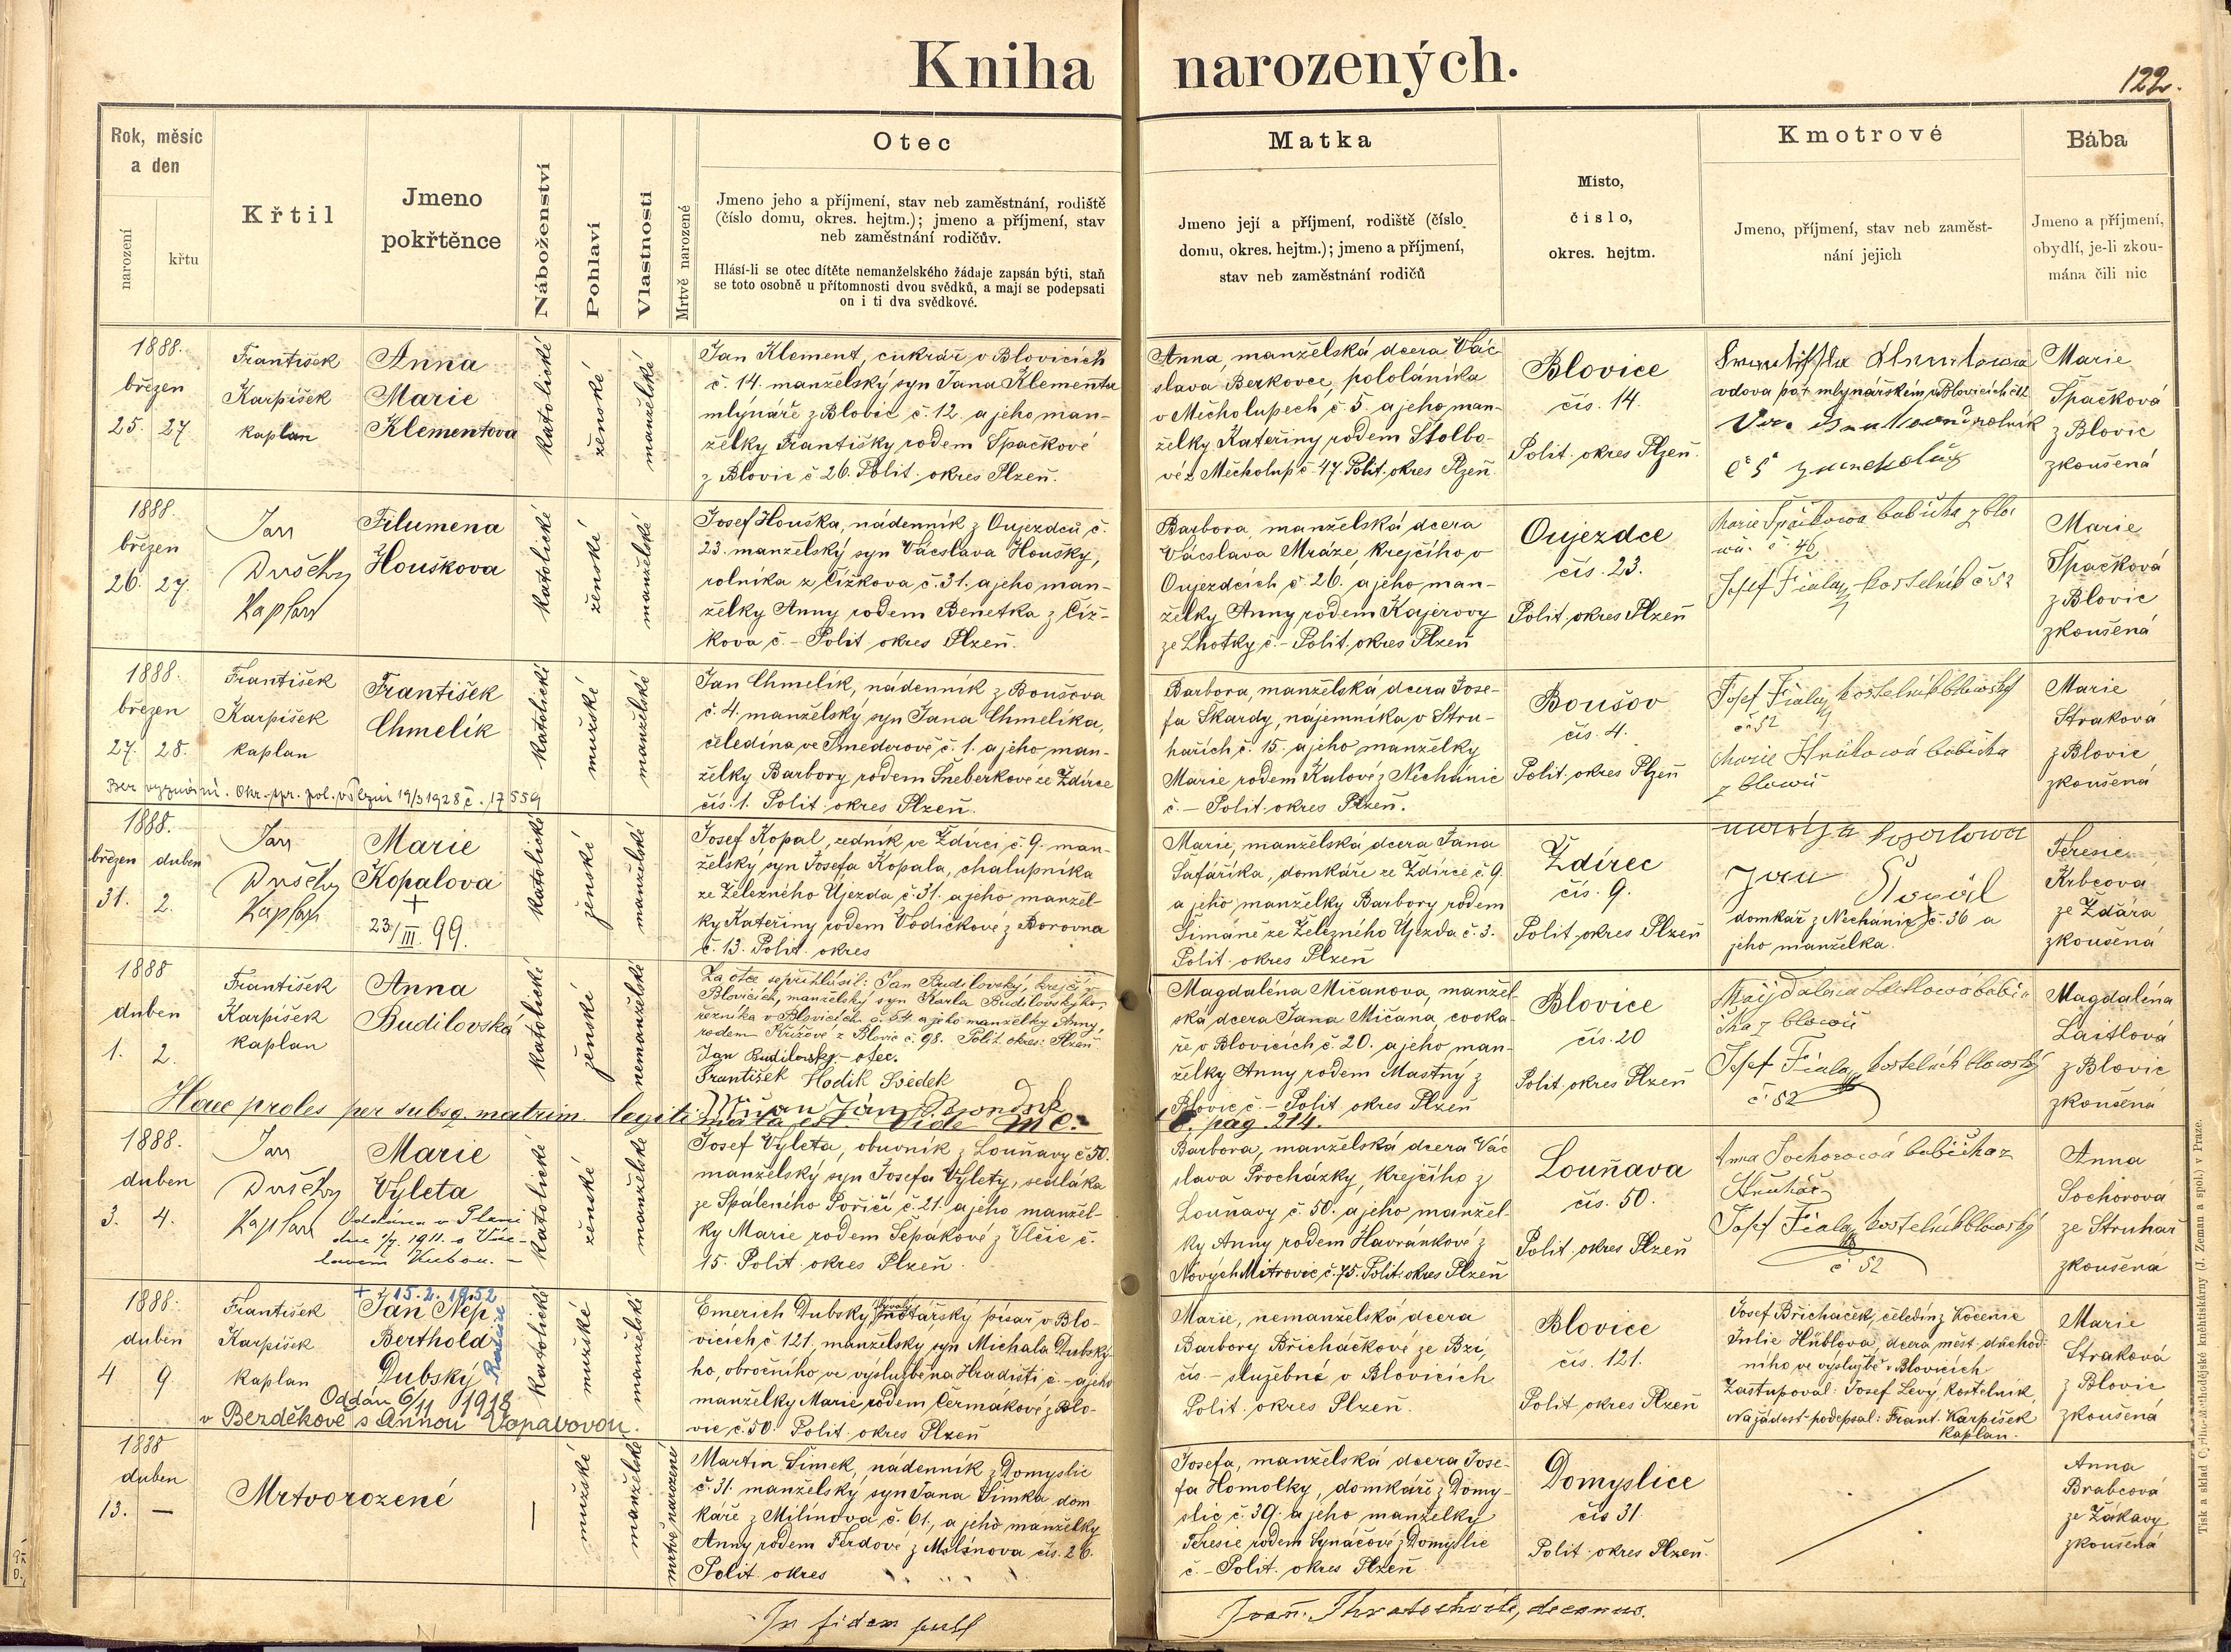 Kniha narozených.
122.
Rok, měsíc
a den
narození
křtu
Křtil
Jmeno
pokřtěnce
Náboženství
Pohlaví
Vlastnosti
Mrtvě narozené
Otec
Jmeno jeho a příjmení, stav neb zaměstnání, rodiště
(číslo domu, okres. hejtm.); jmeno a příjmení, stav
neb zaměstnání rodičův.
Hlásí-li se otec dítěte nemanželského žádaje zapsán býti, staň
se toto osobně u přítomnosti dvou svědků, a mají se podepsati
on i ti dva svědkové.
Matka
Jmeno její a příjmení, rodiště (číslo
domu, okres. hejtm.); jmeno a příjmení,
stav neb zaměstnání rodičů
Místo,
číslo,
okres. hejtm.
Kmotrové
Jmeno, příjmení, stav neb zaměst-
nání jejich
Bába
Jmeno a příjmení,
obydlí, je-li zkou-
mána čili nic
1888.
březen
25. 27.
František
Karpíšek
kaplan
Anna
Marie
Klementova
katolické
ženské
manželské
Jan Klement, cukrář v Blovicích
č. 14. manželský syn Jana Klementa
mlynáře z Blovic č. 12. a jeho man-
želky Františky rodem Špačkové
z Blovic č. 26. Polit. okres Plzeň.
Anna, manželská dcera Vác
slava Berkovce, pololáníka
v Měcholupech č. 5. a jeho man-
želky Kateřiny rodem Stolbo-
vé z Měcholup č. 47. Polit. okres Plzeň.
Blovice
čís. 14.
Polit. okres Plzeň.
vdova po mlynářském v Blovicích č. 12
rolník
Marie
Špačková
z Blovic
zkoušená
1888.
březen
26. 27.
Jan
Dušek
Kaplan
Filumena
Houškova
katolické
ženské
manželské
Josef Houška, nádenník z Oujezdců č.
23. manželský syn Vácslava Houšky,
rolníka z Čížkova č. 31. a jeho man-
želky Anny rodem Benetka z Číž-
kova č. - Polit okres Plzeň.
Barbora, manželská dcera
Vácslava Mráze, krejčího v
Oujezdcích č. 26. a jeho man-
želky Anny rodem Kajerovy
ze Lhotky č. - Polit. okres Plzeň
Oujezdce
čís. 23.
Polit. okres Plzeň
Marie Špačkowa babička z Blo
č. 46
Josef Fiala, kostelník č 52
Marie
Špačková
z Blovic
zkoušená
1888.
březen
27. 28.
František
Karpíšek
kaplan
František
Chmelík
katolické
mužské
manželské
Jan Chmelík, nádenník z Boušova
č. 4. manželský syn Jana Chmelíka,
čeledína ve Smederově č. 1. a jeho man-
želky Barbory rodem Šneberkové ze Ždírce
čís. 1. Polit okres Plzeň.
Bez vyznání. Okr. spr. pol. v Plzni 19/3 1928 č. 17559
Barbora, manželská dcera Jose-
fa Škardy, nájemníka v Stru-
hařích č. 15. a jeho manželky
Marie rodem Kalové z Nechánic
č. - Polit. okres Plzeň.
Boušov
čís. 4.
Polit. okres Plzeň
Josef Fiala, kostelník blowský
č 52
Marie babička
z blowic
Marie
Straková
z Blovic
zkoušená
1888.
březen duben
31. 2.
Jan
Dušek
Kaplan
Marie
Kopalova
+
23/III. 99.
katolické
ženské
manželské
Josef Kopal, zedník, ve Ždírci č. 9. man-
želský syn Josefa Kopala, chalupníka
ze Železného Újezda č. 31. a jeho manžel-
ky Kateřiny rodem Vodičkové z Borovna
č. 13. Polit. okres
Marie, manželská dcera Jana
Šafaříka, domkáře ze Ždírce č. 9.
a jeho manželky Barbory rodem
Šimáně ze Železného Újezda č. 3.
Polit. okres Plzeň
Ždírec
čís. 9.
Polit. okres Plzeň
Jan
domkář z Nechánic č. 36 a
jeho manželka.
Teresie
Krbcova
ze Žďára
zkoušená
1888
duben
1. 2.
František
Karpíšek
kaplan
Anna
Budilovská
katolické
ženské
nemanželské
Za otce se přihlásil: Jan Budilovský, krejčí v
Blovicích, manželský syn Karla Budilovského,
řezníka v Blovicích č. 64 a jeho manželky Anny,
rodem Křížové z Blovic č. 98. Polit. okres: Plzeň.
Jan Budilovský - otec.
František Hodik Svědek
Mičan Jan
Haec proles per subsq. matrim. legitimata est. Vide M C. pag. 214.
Magdaléna Mičanova, manžel-
ská dcera Jana Mičana, cvoka-
ře v Blovicích č. 20. a jeho man-
želky Anny rodem Mastný z
Blovic č. - Polit. okres Plzeň
Blovice
čís. 20
Polit. okres Plzeň
Magdalena babi
čka z blowic
Josef Fiala, kostelník blowský
č 52
Magdaléna
Laitlová
z Blovic
zkoušená
1888.
duben
3. 4.
Jan
Dušek
Kaplan
Marie
Vyleta
Oddána v Plzni
dne 1/7. 1911. s Vác-
lavem Kubou. -
katolické
ženské
manželské
Josef Vyleta, obuvník z Louňavy č 50.
manželský syn Josefa Vylety, sedláka
ze Spáleného Poříčí č. 21. a jeho manžel-
ky Marie rodem Šepákové z Vlčic č.
15. Polit. okres Plzeň.
Barbora, manželská dcera Vác
slava Procházky, krejčího z
Louňavy č. 50. a jeho manžel-
ky Anny rodem Havránkové z
Nových Mitrovic č. 75. Polit. okres Plzeň
Louňava
čís. 50.
Polit. okres Plzeň
Anna Sochorová babička z
Struhař
Josef Fiala, kostelník blowský
č 52
Anna
Sochorová
ze Struhař
zkoušená
1888.
duben
4 9.
František
Karpíšek
kaplan
+ 15. 2. 1952
Jan Nep.
Berthold
Dubský
Oddán 6/11 1918
v Bezděkově s Annou Vopavovou.
katolické
mužské
manželské
Emerich Dubský, bývalý notářský písař v Blo-
vicích č 121. manželský syn Michala Dubský-
ho, obročního ve výslužbě na Hradišti č. - a jeho
manželky Marie rodem Čermákové z Blo-
vic č. 50. Polit. okres Plzeň
Marie, nemanželská dcera
Barbory Břicháčkové ze Bzí,
čís. - služebné v Blovicích
Polit. okres Plzeň.
Blovice
čís. 121.
Polit okres Plzeň
Josef Břicháček, čeledín z Kocenic
Julie Hüblova, dcera měst. důchod-
ního ve výslužbě v Blovicích
Zastupoval: Josef Levý, kostelník
Na žádost podepsal: Frant. Karpíšek
kaplan.
Marie
Straková
z Blovic
zkoušená
1888
duben
13. —
Mrtvorozené
—
mužské
manželské
mrtvě narozené
Martin Šimek, nádenník z Domyslic
č. 31. manželský syn Jana Šimka dom
káře z Milínova č. 61., a jeho manželky
Anny rodem Ferdové z Milínova čís. 26.
Polit. okres " " "
Josefa, manželská dcera Jose-
fa Homolky, domkáře z Domy-
slic č. 39. a jeho manželky
Teresie rodem Synáčové z Domyslic
č. - Polit. okres Plzeň
Domyslice
čís 31.
Polit. okres Plzeň.
Anna
Brabcová
ze Žákavy
zkoušená
In fidem publ
decanus.
Tisk a sklad Cyrillo-Methodějské knihtiskárny (J. Zeman a spol.) v Praze.